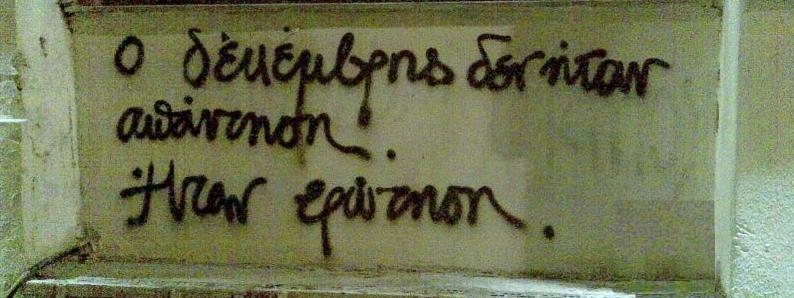 Ο δεκέμβρης δεν ήταν
απάντηση.
Ήταν ερώτηση.